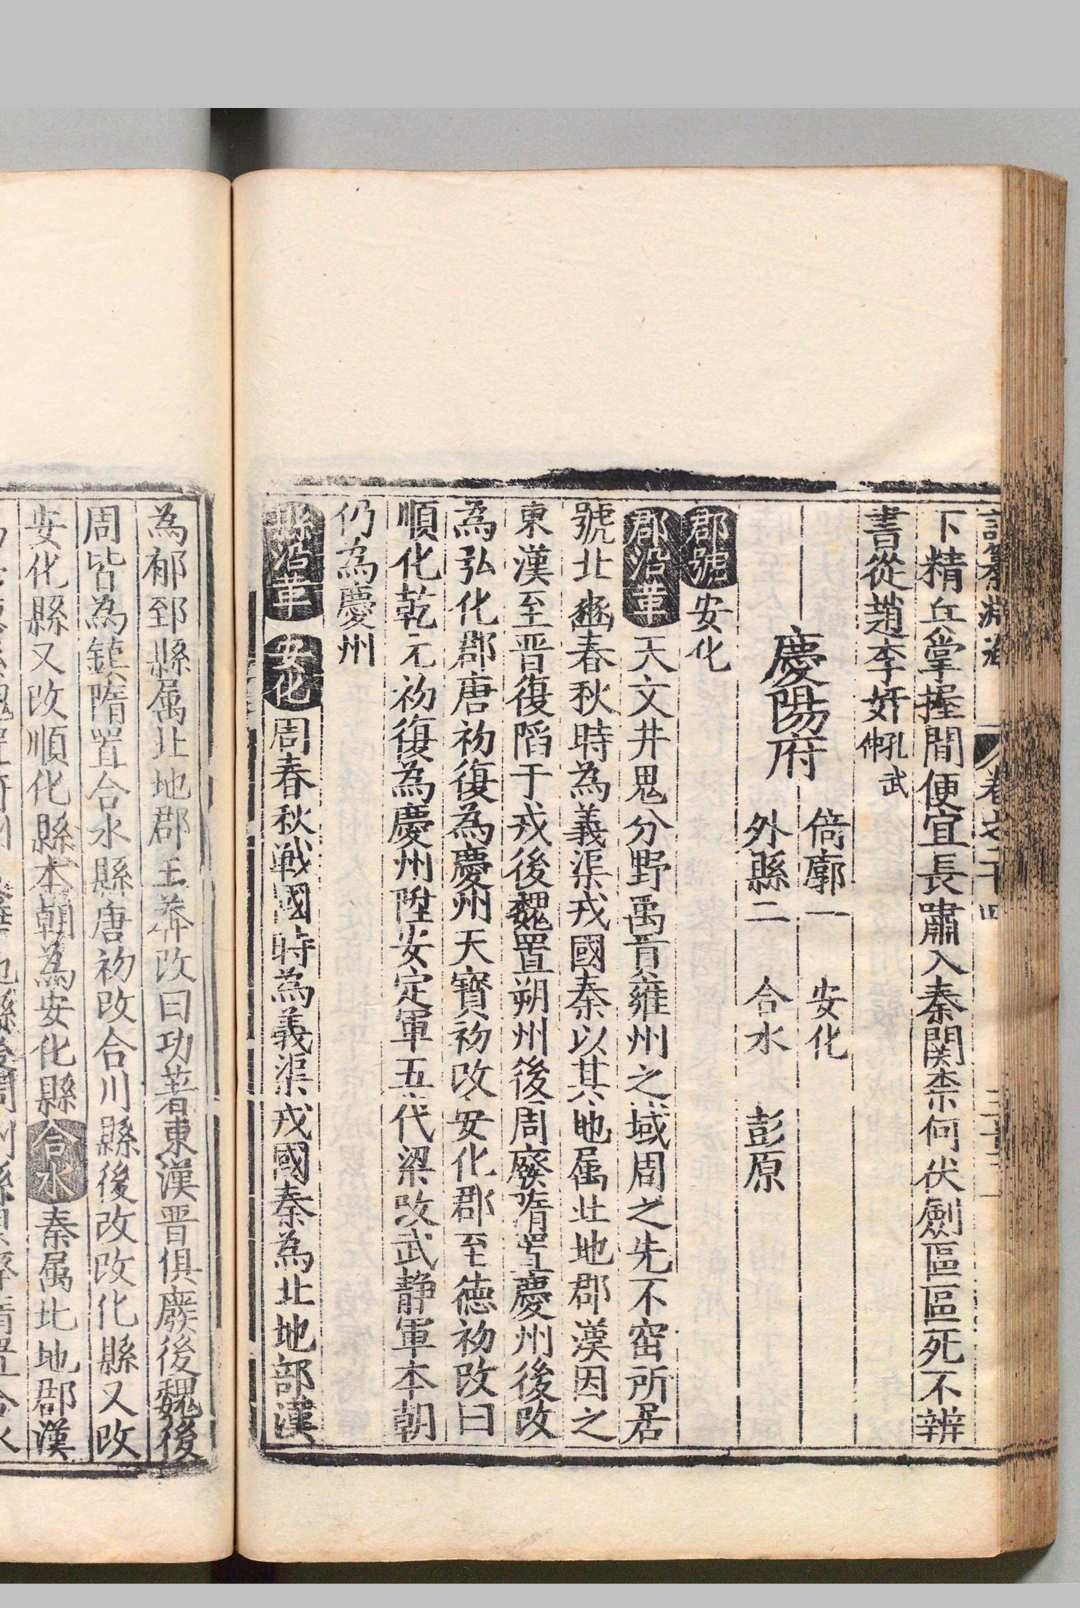 卷之十四
下精兵掌握間便宜長嘯入秦關柰何伏劍區區死不辨
書從趙李奸孔武仲
慶陽府
倚廓一 安化
外縣二 合水 彭原
郡號 安化
郡沿革 天文井鬼分野禹貢雍州之域周之先不窋所居
號北豳春秋時為義渠戎國秦以其地属北地郡漢因之
東漢至晋復陷于戎後魏置朔州後周廢隋置慶州後改
為弘化郡唐初復為慶州天寳初改安化郡至德初改曰
順化乾元初復為慶州陞安定軍五代梁改武静軍本朝
仍為慶州
縣沿革 安化 周春秋戦國時為義渠戎國秦為北地部漢
為郁郅縣属北地郡王莾改曰功著東漢晋俱廢後魏後
周皆為鎮隋置合水縣唐初改合川縣後改改化縣又改
安化縣又改順化縣本朝為安化縣 合水 秦属北地郡漢